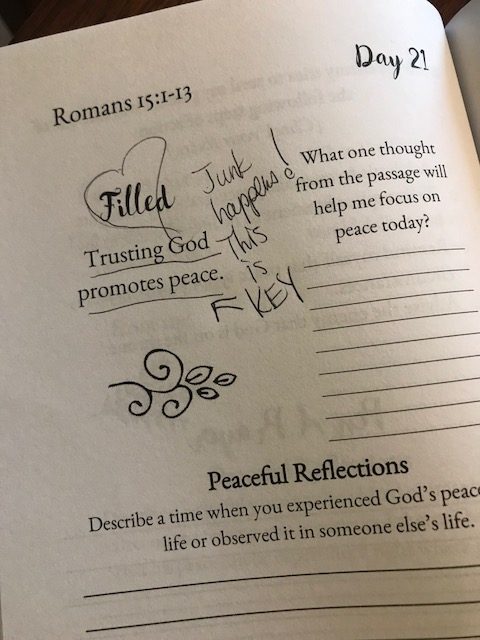 Day 21
Romans 15:1-13
Filled
Trusting God
promotes peace.
Junk
happens!
This
is
KEY
What one thought
from the passage will
help me focus on
peace today?
Peaceful Reflections
Describe a time when you experienced God's peace
life or observed it in someone else's life.